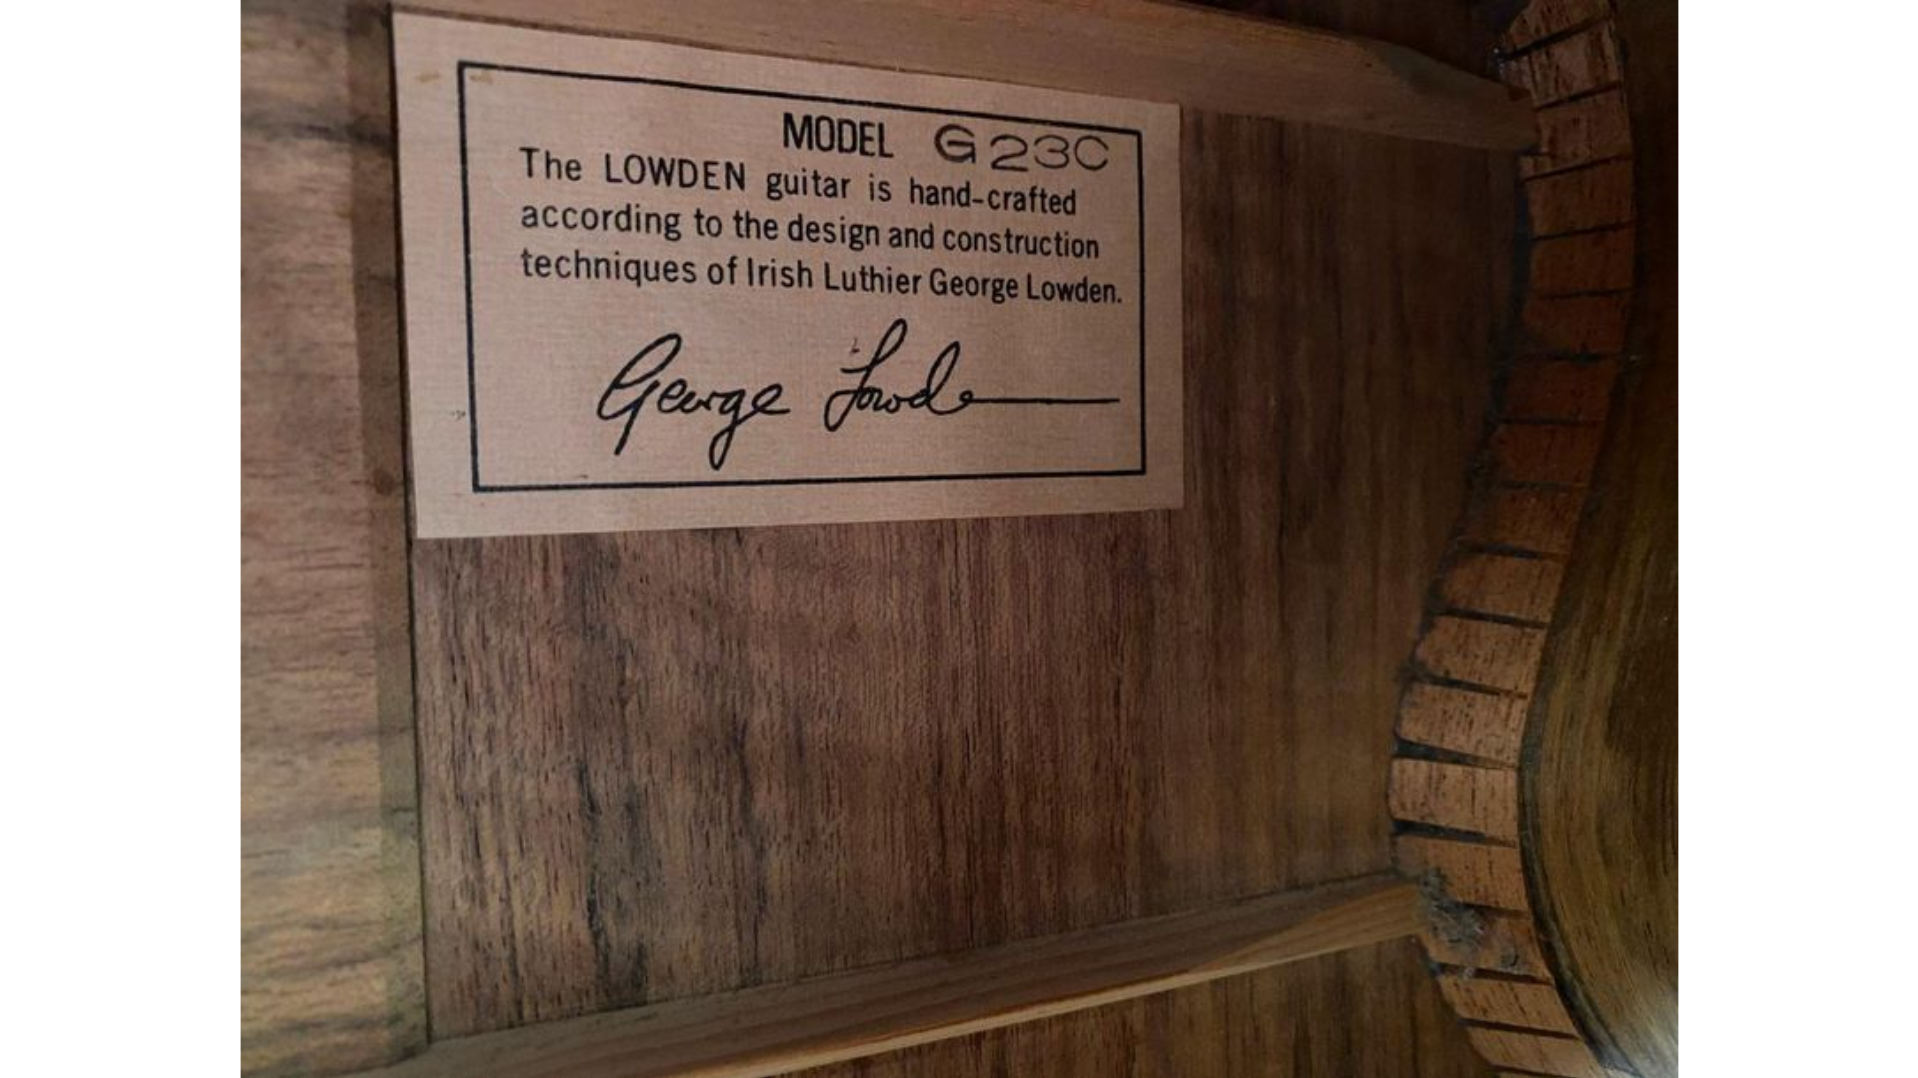 MODEL G23C
The LOWDEN guitar is hand-crafted
according to the design and construction
techniques of Irish Luthier George Lowden.
George Lowden